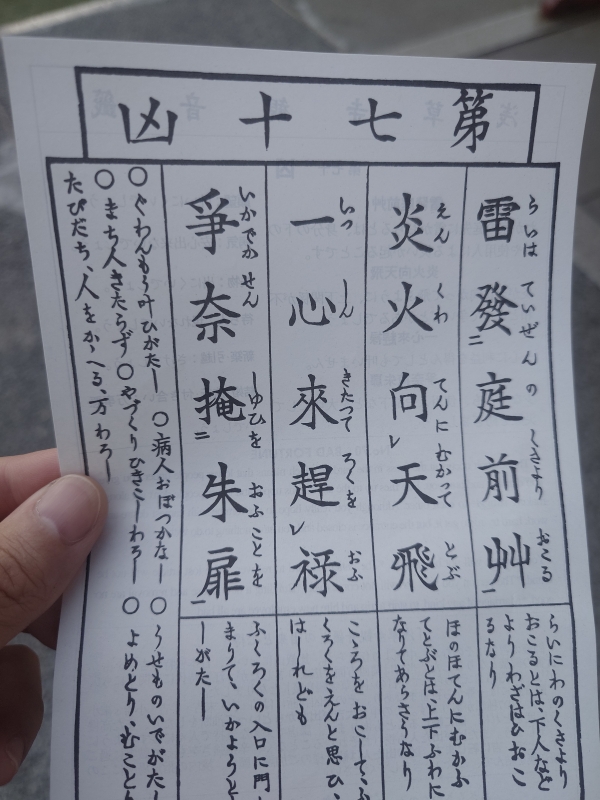 第七十凶
雷發庭前艸
らいは ていぜんの くさより おこる
らいにわのくさより
おこるとは、下人など
よりわざはひおこ
るなり
炎火向天飛
えん くわ てんに むかつて とぶ
ほのほてんにむかふ
てとぶとは、上下ふわに
なりてあらさうなり
一心來趕禄
いつ しん きたつて ろくを おふ
こゝろをおこして、ふ
くろくをえんと思ひ、
はしれども
爭奈掩朱扉
いかでか せん しゆひを おふことを
ふくろくの入口に門
まりて、いかようと
しがたし
○ぐわんもう叶ひがたし ○病人おぼつかなし ○うせものいでがたし
○まち人きたらず ○やづくりひきこしわろし ○よめとり、むことり
たびだち、人をかゝへる、万わろし